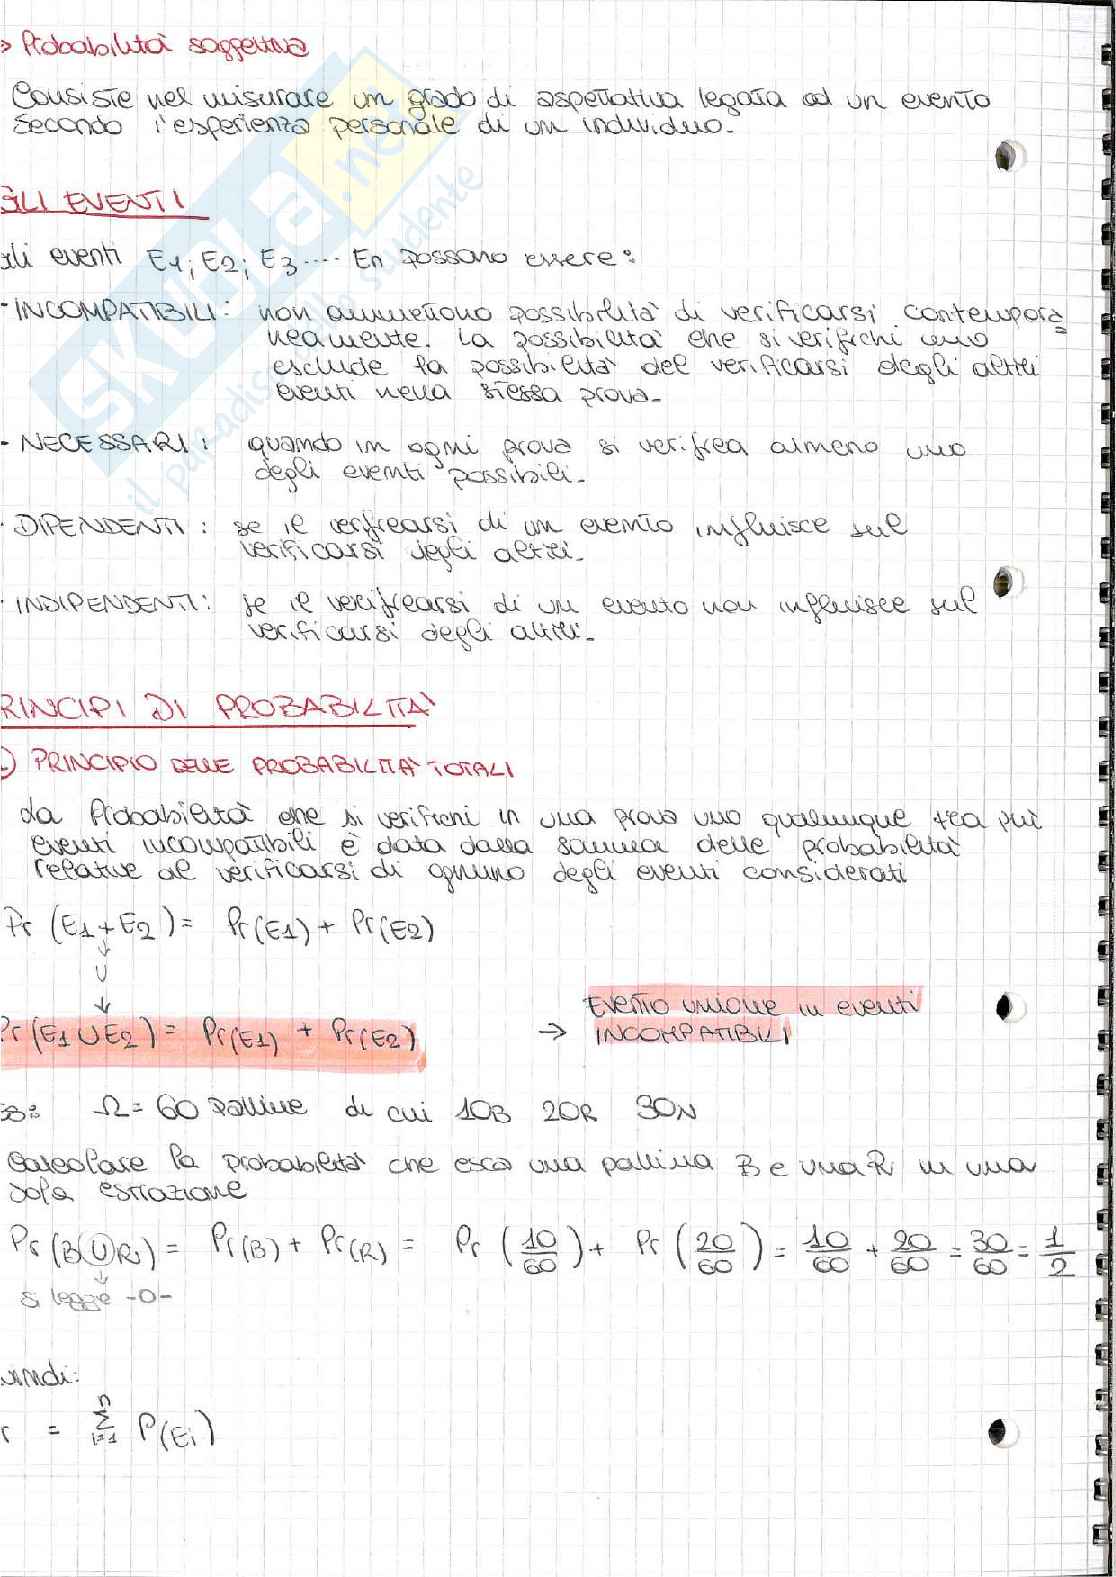 > Probabilità soggettiva
Consiste nel misurare un grado di aspettativa legata ad un evento
secondo l'esperienza personale di un individuo.
GLI EVENTI
gli eventi E1; E2; E3 .... En possono essere:
- INCOMPATIBILI: non ammettono possibilità di verificarsi contempora
neamente. La possibilità che si verifichi uno
esclude la possibilità del verificarsi degli altri
eventi nella stessa prova.
- NECESSARI: quando in ogni prova si verifica almeno uno
degli eventi possibili.
- DIPENDENTI: se il verificarsi di un evento influisce sul
verificarsi degli altri.
- INDIPENDENTI: se il verificarsi di un evento non influisce sul
verificarsi degli altri.
RINCIPI DI PROBABILITÀ
) PRINCIPIO DELLE PROBABILITÀ TOTALI
La Probabilità che si verifichi in una prova uno qualunque tra più
eventi incompatibili è data dalla somma delle probabilità
relative al verificarsi di ognuno degli eventi considerati
Pr (E1 + E2) = Pr(E1) + Pr(E2)
↓
U
↓
Pr(E1 U E2) = Pr(E1) + Pr(E2) → Evento unione in eventi
INCOMPATIBILI
ES: Ω = 60 palline di cui 10B 20R 30N
Calcolare la probabilità che esca una pallina B e una R in una
sola estrazione
Pr (B U R) = Pr(B) + Pr(R) = Pr (10/60) + Pr (20/60) = 10/60 + 20/60 = 30/60 = 1/2
↓
si legge -O-
uindi:
r = Σ i=1 P(Ei)
SKUOLA.net
il paradiso dello studente